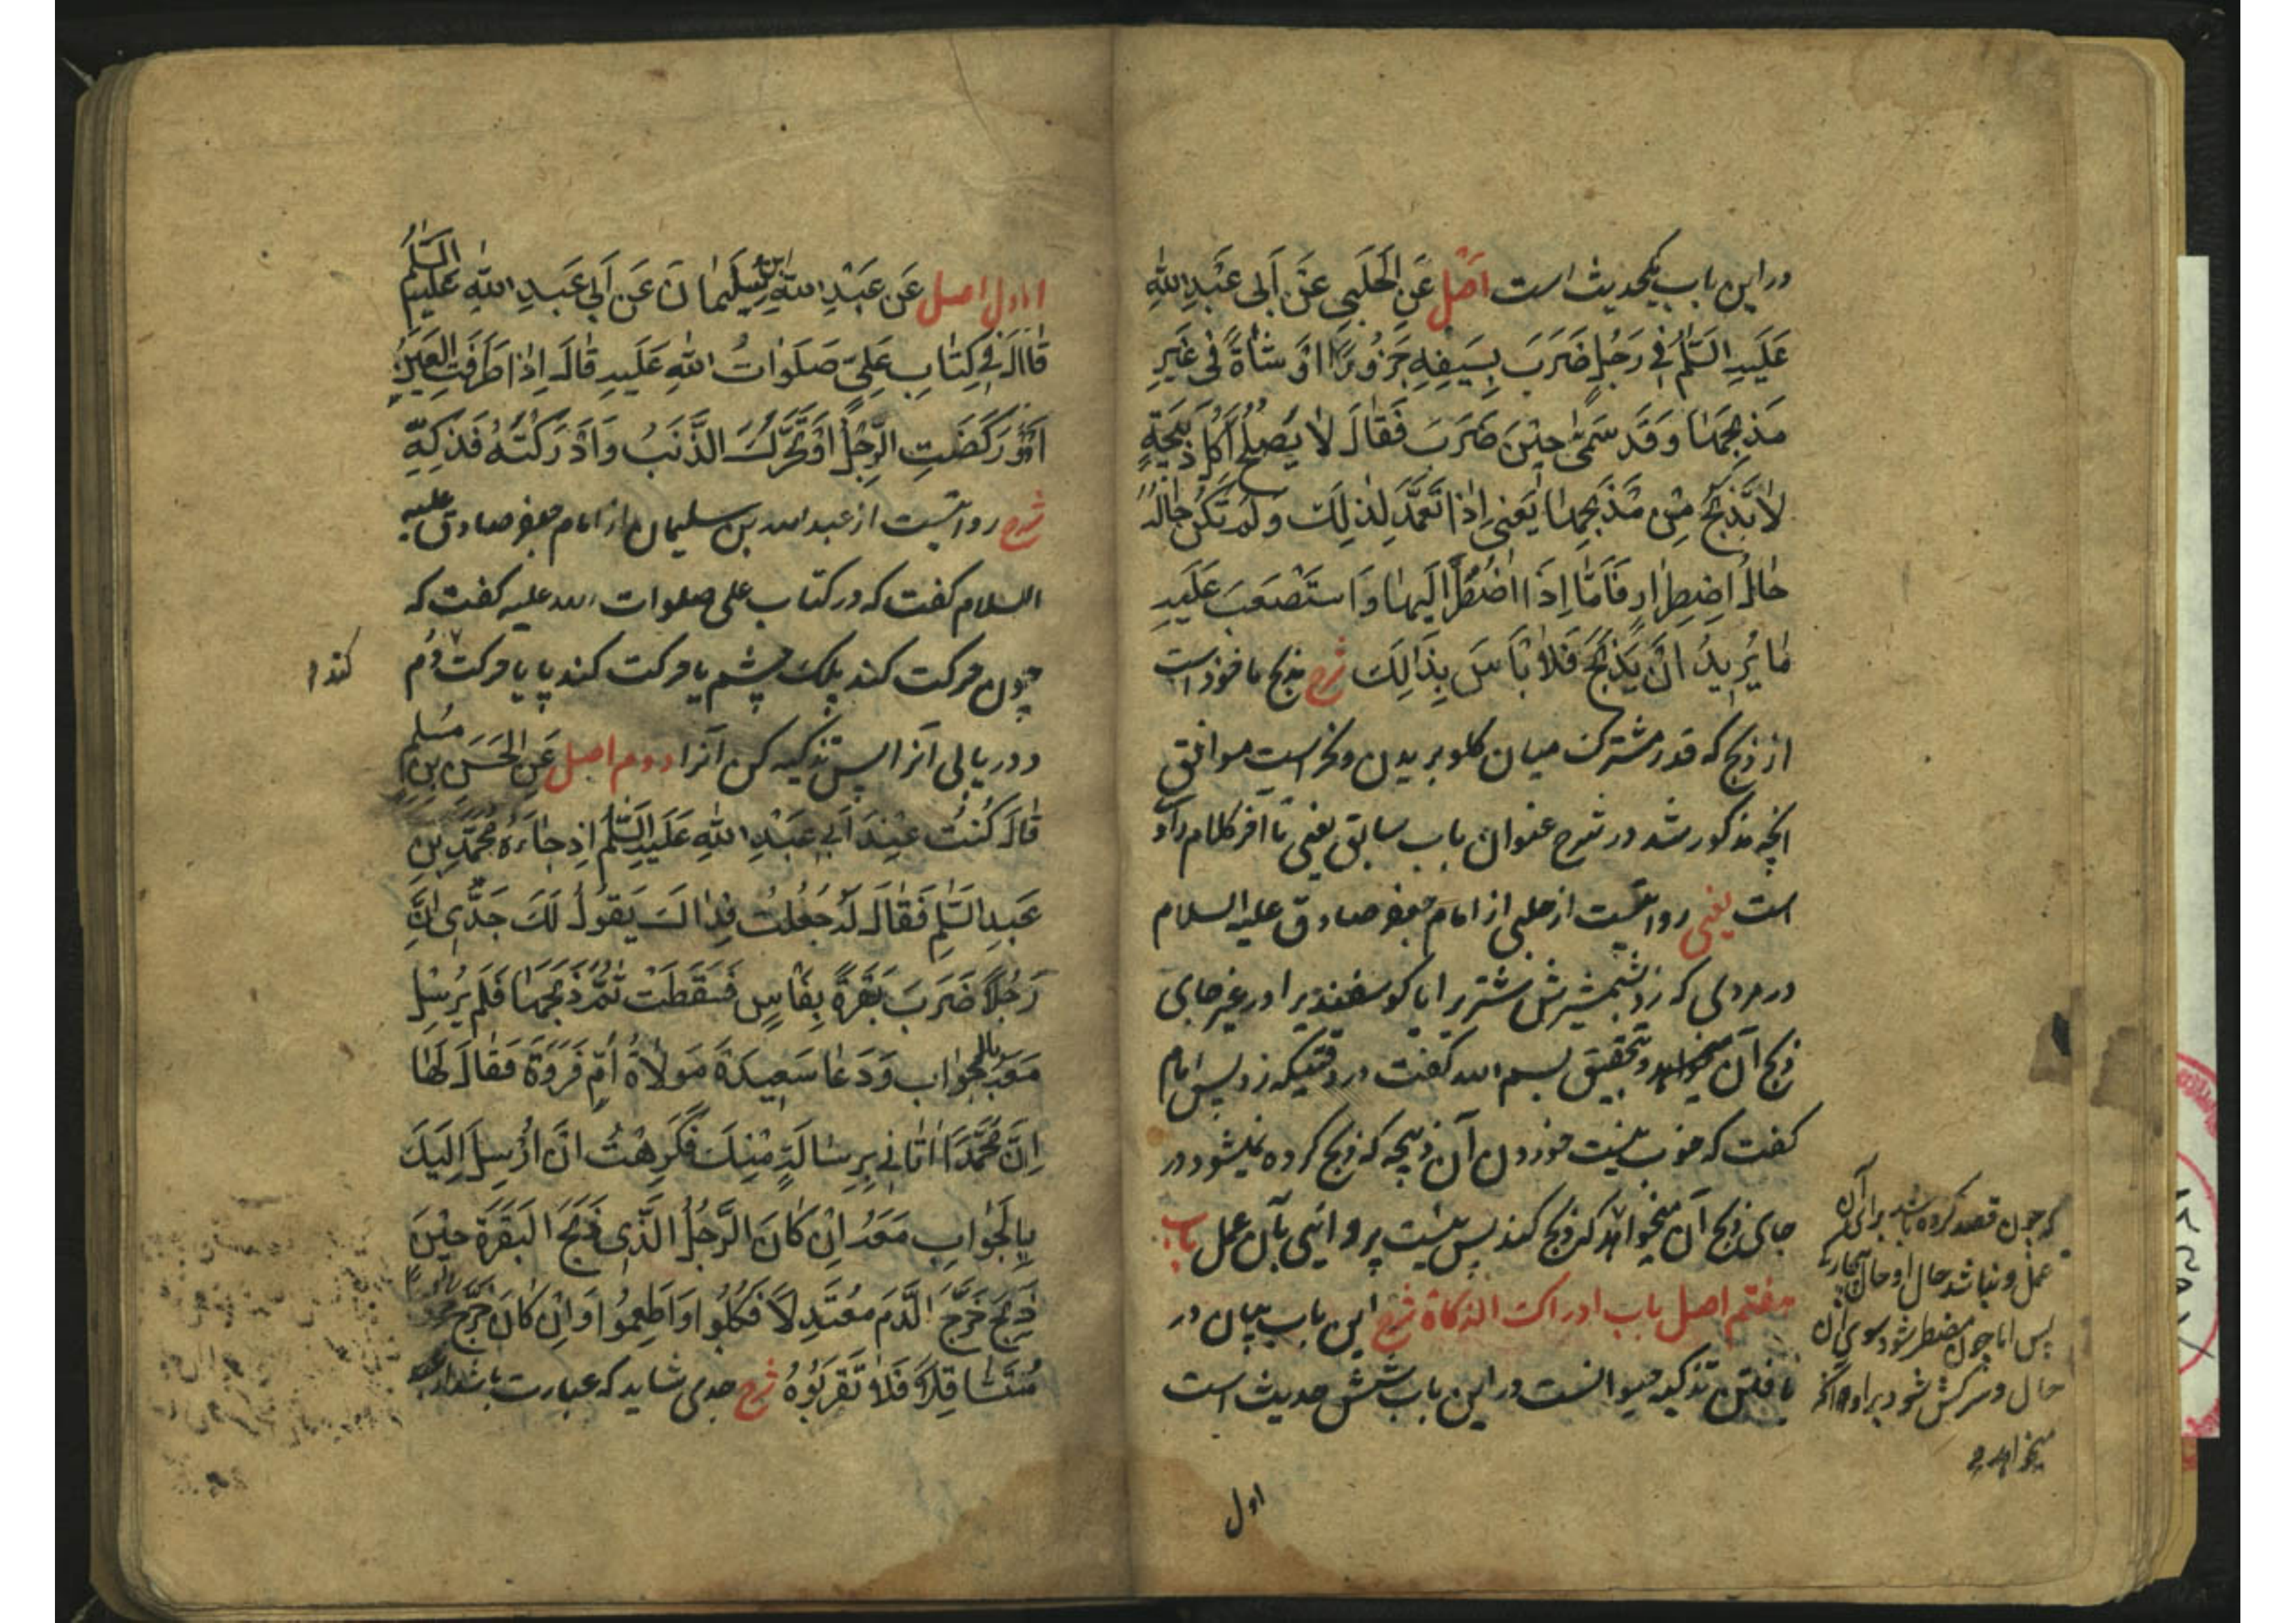 در این باب یکحدیث است اَصْل عَنِ الْحَلَبِي عَنْ اَبِي عَبْدِ اللّٰهِ
عَلَيْهِ السَّلٰمُ فِي رَجُلٍ ضَرَبَ بِسَيْفِهِ جَزُورًا اَوْ شَاةً فِي غَيْرِ
مَذْبَحِهَا وَقَدْ سَمّٰى حِيْنَ ضَرَبَ فَقَالَ لَا يَصْلُحُ اَكْلُ ذَبِيحَةٍ
لَا تُذْبَحُ مِنْ مَذْبَحِهَا يَعْنِي اِذَا تَعَمَّدَ لِذٰلِكَ وَلَمْ تَكُنْ حَالُهُ
حَالَ اضْطِرَارٍ فَاَمَّا اِذَا اضْطُرَّ اِلَيْهَا وَاسْتَصْعَبَ عَلَيْهِ
مَا يُرِيدُ اَنْ يَذْبَحَ فَلَا بَاْسَ بِذَالِكَ شرح مذبح ماخوذ است
از ذبح که قدر مشترک میان کلو بریدن و نحر است موافق
انچه مذکور شد در شرح عنوان باب سابق یعنی تا آخر کلام
است یعنی روایتست از حلبی از امام جعفر صادق علیه السلام
در مردی که زد بشمشیرش شتر را یا کوسفند را در غیر جای
ذبح آن و بتحقیق بسم الله کفت در وقتیکه زد پس امام
کفت که خوب نیست خوردن آن ذبیحه که ذبح کرده نمیشود در
جای ذبح آن میخواهد که ذبح کند پس نیست پروائی بآن عمل باب
هفتم اصل باب ادراک الذکاة شرح این باب بیان در
یافتن تذکیه حیوانست در این باب شش حدیث است
که چون قصد کرده باشد برای آن
عمل و نباشد حال او حال بیچارکی
پس اما چون مضطر شود سوی آن
حال و سرکش شود بر او آنکه
میخواهد
اول
اول اصل عَنْ عَبْدِ اللّٰهِ بْنِ سُلَيْمَانَ عَنْ اَبِي عَبْدِ اللّٰهِ عَلَيْهِ السَّلٰمُ
قَالَ فِي كِتَابِ عَلِيٍّ صَلَوَاتُ اللّٰهِ عَلَيْهِ قَالَ اِذَا طَرَفَتِ الْعَيْنُ
اَوْ رَكَضَتِ الرِّجْلُ اَوْ تَحَرَّكَ الذَّنَبُ وَاَدْرَكْتَهُ فَذَكِّهِ
شرح روایتست از عبد الله بن سلیمان از امام جعفر صادق علیه
السلام کفت که در کتاب علی صلوات الله علیه کفت که
چون حرکت کند پلک چشم یا حرکت کند پا یا حرکت دم
کند
و دریابی آنرا پس تذکیه کن آنرا دوم اصل عَنِ الْحَسَنِ بْنِ مُسْلِمٍ
قَالَ كُنْتُ عِنْدَ اَبِي عَبْدِ اللّٰهِ عَلَيْهِ السَّلٰمُ اِذْ جَاءَهُ مُحَمَّدُ بْنُ
عَبْدِ السَّلٰمِ فَقَالَ لَهُ جُعِلْتُ فِدَاكَ يَقُولُ لَكَ جَدِّي اِنَّ
رَجُلًا ضَرَبَ بَقَرَةً بِفَاسٍ فَسَقَطَتْ ثُمَّ ذَبَحَهَا فَلَمْ يُرْسِلْ
مَعَهُ بِالْجَوَابِ وَدَعَا سَعِيدَةَ مَوْلَاةَ اُمِّ فَرْوَةَ فَقَالَ لَهَا
اِنَّ مُحَمَّدًا اَتَانِي بِرِسَالَةٍ مِنْكَ فَكَرِهْتُ اَنْ اُرْسِلَ اِلَيْكَ
بِالْجَوَابِ مَعَهُ اِنْ كَانَ الرَّجُلُ الَّذِي ذَبَحَ الْبَقَرَةَ حِيْنَ
ذَبَحَ خَرَجَ الدَّمُ مُعْتَدِلًا فَكُلُوا وَاَطْعِمُوا وَاِنْ كَانَ خَرَجَ
مُتَثَاقِلًا فَلَا تَقْرَبُوهُ شرح جدی شاید که عبارت باشد از